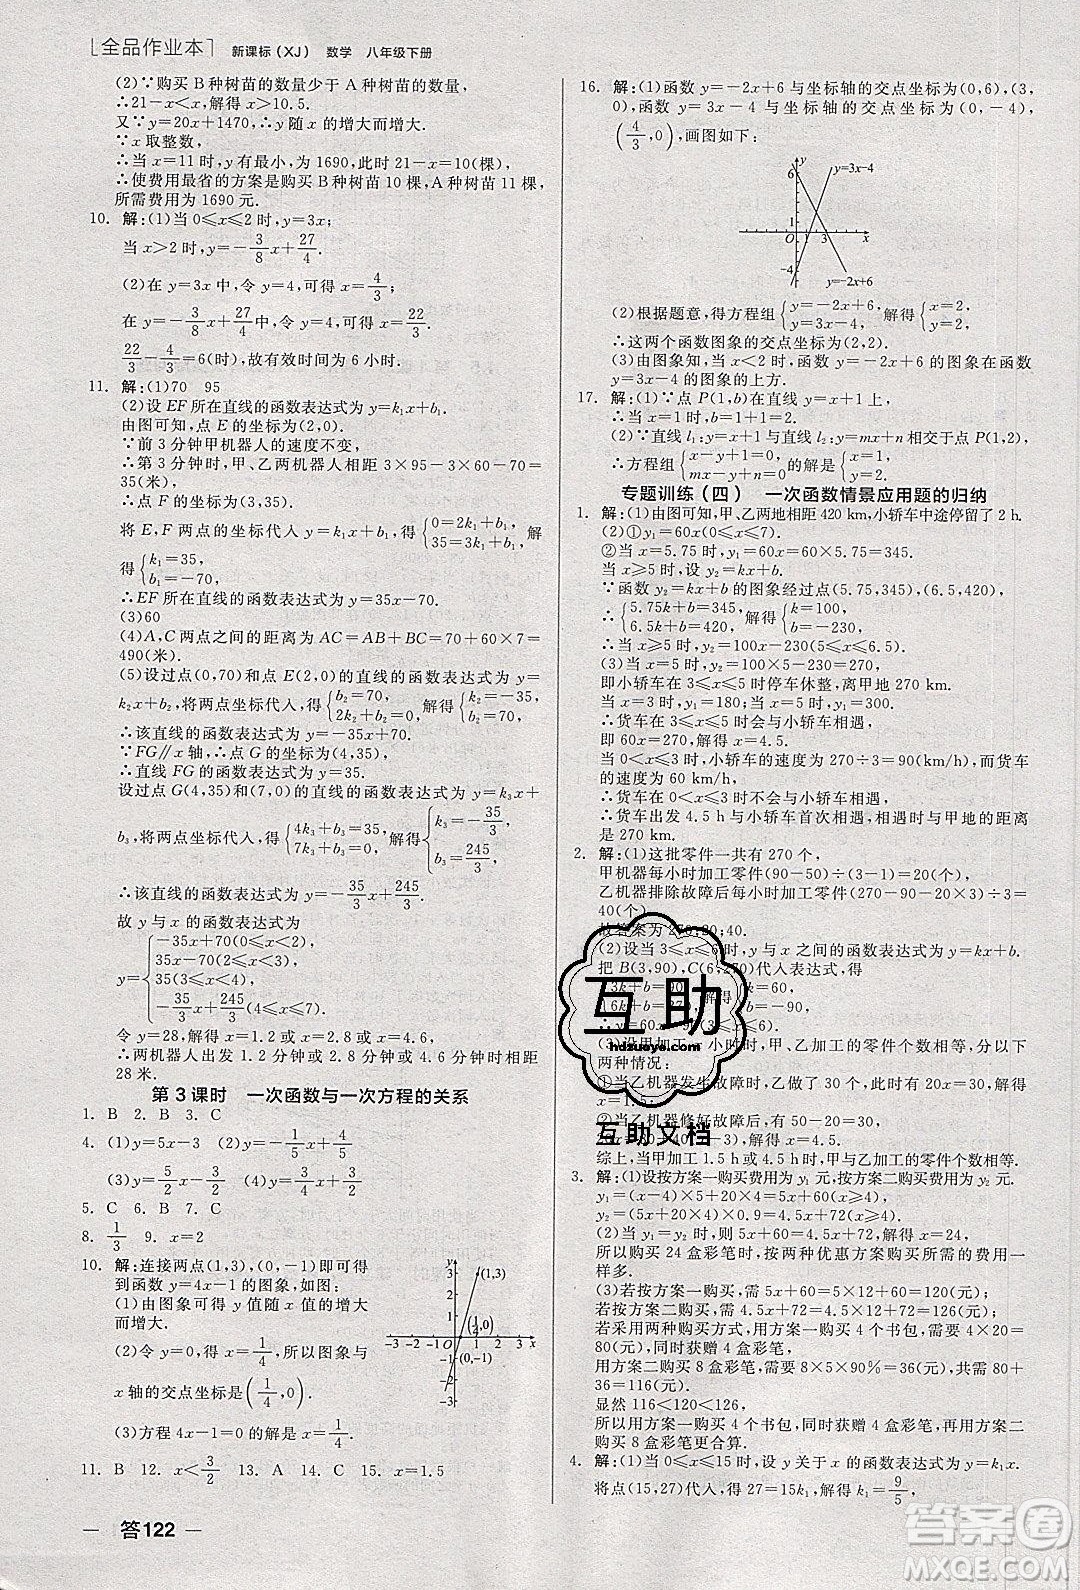 [全品作业本] 新课标(XJ) 数学 八年级下册
(2)∵购买B种树苗的数量少于A种树苗的数量,
∴21-x<x,解得x>10.5.
又∵y=20x+1470,∴y随x的增大而增大.
∵x取整数,
∴当x=11时,y有最小为1690,此时21-x=10(棵).
∴使费用最省的方案是购买B种树苗10棵,A种树苗11棵,
所需费用为1690元.
10. 解:(1)当0≤x≤2时,y=3x;
当x>2时,y=-3/8x+27/4.
(2)在y=3x中,令y=4,可得x=4/3;
在y=-3/8x+27/4中,令y=4,可得x=22/3.
22/3-4/3=6(时),故有效时间为6小时.
11. 解:(1)70 95
(2)设EF所在直线的函数表达式为y=k₁x+b₁.
由图可知,点E的坐标为(2,0).
∵前3分钟甲机器人的速度不变,
∴第3分钟时,甲、乙两机器人相距3×95-3×60-70=
35(米),
∴点F的坐标为(3,35).
将E,F两点的坐标代入y=k₁x+b₁,得{0=2k₁+b₁, 35=3k₁+b₁,解
得{k₁=35, b₁=-70,
∴EF所在直线的函数表达式为y=35x-70.
(3)60
(4)A,C两点之间的距离为AC=AB+BC=70+60×7=
490(米).
(5)设过点(0,70)和点E(2,0)的直线的函数表达式为y=
k₂x+b₂,将两点坐标代入,得{b₂=70, 2k₂+b₂=0,解得{b₂=70, k₂=-35,
∴该直线的函数表达式为y=-35x+70.
∵FG∥x轴,∴点G的坐标为(4,35),
∴直线FG的函数表达式为y=35.
设过点G(4,35)和(7,0)的直线的函数表达式为y=k₃x+
b₃,将两点坐标代入,得{4k₃+b₃=35, 7k₃+b₃=0,解得{k₃=-35/3, b₃=245/3,
∴该直线的函数表达式为y=-35/3x+245/3.
故y与x的函数表达式为
y={-35x+70(0≤x<2), 35x-70(2≤x<3), 35(3≤x<4), -35/3x+245/3(4≤x≤7).
令y=28,解得x=1.2或x=2.8或x=4.6.
∴两机器人出发1.2分钟或2.8分钟或4.6分钟时相距
28米.
第3课时 一次函数与一次方程的关系
1. B 2. B 3. C
4. (1)y=5x-3 (2)y=-1/2x+1/2
(3)y=1/2x (4)y=-1/2x+1/2
5. C 6. B 7. C
8. 1/3 9. x=2
10. 解:连接两点(1,3),(0,-1)即可得
到函数y=4x-1的图象,如图:
(1)由图象可得y值随x值的增大
而增大.
(2)令y=0,得x=1/4,∴图象与
x轴的交点坐标是(1/4,0).
(3)方程4x-1=0的解是x=1/4.
y
4
3
2
1
(1,3)
(1/4,0)
-3 -2 -1 O 1 2 3 x
(0,-1)
-2
-3
11. B 12. x<3/2 13. A 14. C 15. x=1.5
— 答122 —
16. 解:(1)函数y=-2x+6与坐标轴的交点坐标为(0,6),(3,
0),函数y=3x-4与坐标轴的交点坐标为(0,-4),
(4/3,0),画图如下:
y
6
y=3x-4
1
O 1 3 x
-4
y=-2x+6
(2)根据题意,得方程组{y=-2x+6, y=3x-4,解得{x=2, y=2,
∴这两个函数图象的交点坐标为(2,2).
(3)由图象知,当x<2时,函数y=-2x+6的图象在函数
y=3x-4的图象的上方.
17. 解:(1)∵点P(1,b)在直线y=x+1上,
∴当x=1时,b=1+1=2.
(2)∵直线l₁:y=x+1与直线l₂:y=mx+n相交于点P(1,2),
∴方程组{x-y+1=0, mx-y+n=0的解是{x=1, y=2.
专题训练(四) 一次函数情景应用题的归纳
1. 解:(1)由图可知,甲、乙两地相距420 km,小轿车中途停留了2 h.
(2)①y₁=60x(0≤x≤7).
②当x=5.75时,y₁=60x=60×5.75=345.
当x≥5时,设y₂=kx+b.
∵函数y₂=kx+b的图象经过点(5.75,345),(6.5,420),
∴{5.75k+b=345, 6.5k+b=420,解得{k=100, b=-230,
∴当x≥5时,y₂=100x-230(5≤x≤6.5).
(3)当x=5时,y₂=100×5-230=270.
即小轿车在3≤x≤5时停车休整,离甲地270 km.
当x=3时,y₁=180;当x=5时,y₁=300.
∴货车在3≤x≤5时会与小轿车相遇,
即60x=270,解得x=4.5.
当0<x≤3时,小轿车的速度为270÷3=90(km/h),而货车
的速度为60 km/h,
∴货车在0<x≤3时不会与小轿车相遇,
∴货车出发4.5 h与小轿车首次相遇,相遇时与甲地的距离
是270 km.
2. 解:(1)这批零件一共有270个,
甲机器每小时加工零件(90-50)÷(3-1)=20(个),
乙机器排除故障后每小时加工零件(270-90-20×3)÷3=
40(个).
故答案为270;20;40.
(2)设当3≤x≤6时,y与x之间的函数表达式为y=kx+b.
把B(3,90),C(6,270)代入表达式,得
{3k+b=90, 6k+b=270,解得{k=60, b=-90,
∴y=60x-90(3≤x≤6).
(3)设甲加工x小时时,甲、乙加工的零件个数相等,分以下
两种情况:
①当乙机器发生故障时,乙做了30个,此时20x=30,解得
x=1.5.
②当乙机器修好故障后,
20x=30+40(x-3),解得x=4.5.
综上,当甲加工1.5 h或4.5 h时,甲与乙加工的零件个数相等.
3. 解:(1)设按方案一购买费用为y₁元,按方案二购买费用为y₂元.
y₁=(x-4)×5+20×4=5x+60,
y₂=(5x+20×4)×0.9=4.5x+72.
(2)当y₁=y₂时,即5x+60=4.5x+72,解得x=24.
所以购买24盒彩笔时,两种优惠方案所需的费用一
样多.
(3)若按方案一购买,需5x+60=5×12+60=120(元),
若按方案二购买,需4.5x+72=4.5×12+72=126(元),
若采用两种购买方式,用方案一购买4个书包,需4×20=
80(元),同时获赠4盒彩笔,
用方案二购买8盒彩笔,需要8×5×90%=36(元),共需80+
36=116(元).
显然116<120<126,
所以用方案一购买4个书包,同时获赠4盒彩笔,再用方案二
购买8盒彩笔更合算.
4. 解:(1)当0≤x≤15时,设y关于x的函数表达式为y=k₁x.
将点(15,27)代入,得27=15k₁,解得k₁=9/5,
互助
hdzuoye.com
互助文档
答案圈
MXQE.COM